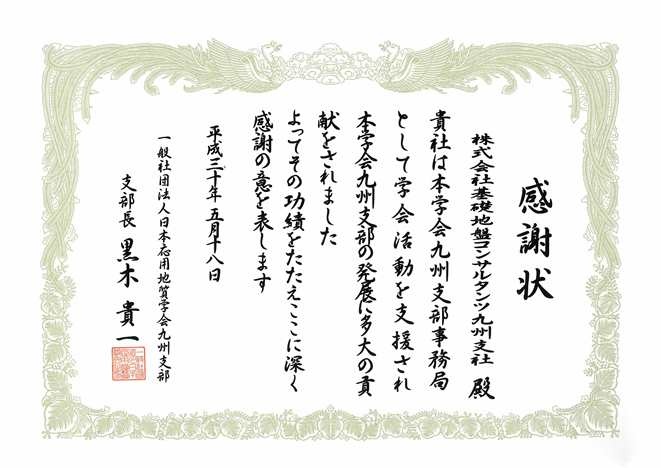 感謝状
株式会社基礎地盤コンサルタンツ九州支社 殿
貴社は本学会九州支部事務局
として学会活動を支援され
本学会九州支部の発展に多大の貢
献をされました
よってその功績をたたえここに深く
感謝の意を表します
平成三十年五月十八日
一般社団法人日本応用地質学会九州支部
支部長 黒木貴一